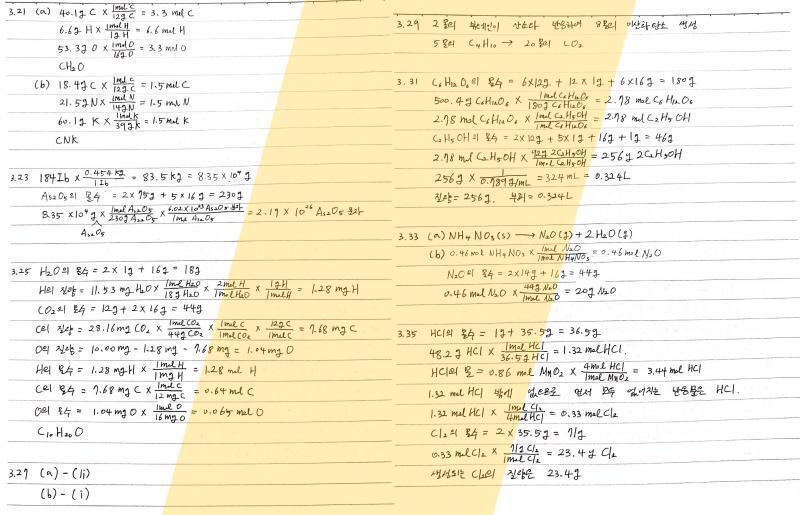 3.21 (a) 40.1g C × 1mol C/12g C = 3.3 mol C
6.6g H × 1mol H/1g H = 6.6 mol H
53.3g O × 1mol O/16g O = 3.3 mol O
CH₂O
(b) 18.4g C × 1mol C/12g C = 1.5 mol C
21.5g N × 1mol N/14g N = 1.5 mol N
60.1g K × 1mol K/39g K = 1.5 mol K
CNK
3.23 184 Ib × 0.454 kg/1 Ib = 83.5 kg = 8.35 × 10⁴ g
As₂O₅의 몰수 = 2 × 75g + 5 × 16g = 230g
8.35 × 10⁴ g × 1mol As₂O₅/230g As₂O₅ × 6.02 × 10²³ As₂O₅ 분자/1mol As₂O₅ = 2.19 × 10²⁶ As₂O₅ 분자
As₂O₅
3.25 H₂O의 몰수 = 2 × 1g + 16g = 18g
H의 질량 = 11.53 mg H₂O × 1mol H₂O/18g H₂O × 2mol H/1mol H₂O × 1g H/1mol H = 1.28 mg H
CO₂의 몰수 = 12g + 2 × 16g = 44g
C의 질량 = 28.16 mg CO₂ × 1mol CO₂/44g CO₂ × 1mol C/1mol CO₂ × 12g C/1mol C = 7.68 mg C
O의 질량 = 10.00 mg - 1.28 mg - 7.68 mg = 1.04 mg O
H의 몰수 = 1.28 mg H × 1mol H/1mg H = 1.28 mol H
C의 몰수 = 7.68 mg C × 1mol C/12mg C = 0.64 mol C
O의 몰수 = 1.04 mg O × 1mol O/16mg O = 0.065 mol O
C₁₀H₂₀O
3.27 (a) - (ii)
(b) - (i)
3.29 2 몰의 부테인이 산소와 반응하여 8몰의 이산화탄소 생성
5몰의 C₄H₁₀ → 20몰의 CO₂
3.31 C₆H₁₂O₆의 몰수 = 6×12g + 12 × 1g + 6×16g = 180g
500.4g C₆H₁₂O₆ × 1mol C₆H₁₂O₆/180g C₆H₁₂O₆ = 2.78 mol C₆H₁₂O₆
2.78 mol C₆H₁₂O₆ × 1mol C₂H₅OH/1mol C₆H₁₂O₆ = 2.78 mol C₂H₅OH
C₂H₅OH의 몰수 = 2×12g + 5×1g + 16g + 1g = 46g
2.78 mol C₂H₅OH × 92g 2C₂H₅OH/1mol C₂H₅OH = 256g 2C₂H₅OH
256g × 1/0.789g/mL = 324 mL = 0.324L
질량 = 256g, 부피 = 0.324L
3.33 (a) NH₄NO₃(s) → N₂O(g) + 2H₂O(g)
(b) 0.46 mol NH₄NO₃ × 1mol N₂O/1mol NH₄NO₃ = 0.46 mol N₂O
N₂O의 몰수 = 2×14g + 16g = 44g
0.46 mol N₂O × 44g N₂O/1mol N₂O = 20g N₂O
3.35 HCl의 몰수 = 1g + 35.5g = 36.5g
48.2g HCl × 1mol HCl/36.5g HCl = 1.32 mol HCl.
HCl의 몰 = 0.86 mol MnO₂ × 4mol HCl/1mol MnO₂ = 3.44 mol HCl
1.32 mol HCl 밖에 없으므로 먼저 모두 없어지는 반응물은 HCl.
1.32 mol HCl × 1mol Cl₂/4mol HCl = 0.33 mol Cl₂
Cl₂의 몰수 = 2 × 35.5g = 71g
0.33 mol Cl₂ × 71g Cl₂/1mol Cl₂ = 23.4g Cl₂
생성되는 Cl₂의 질량은 23.4g